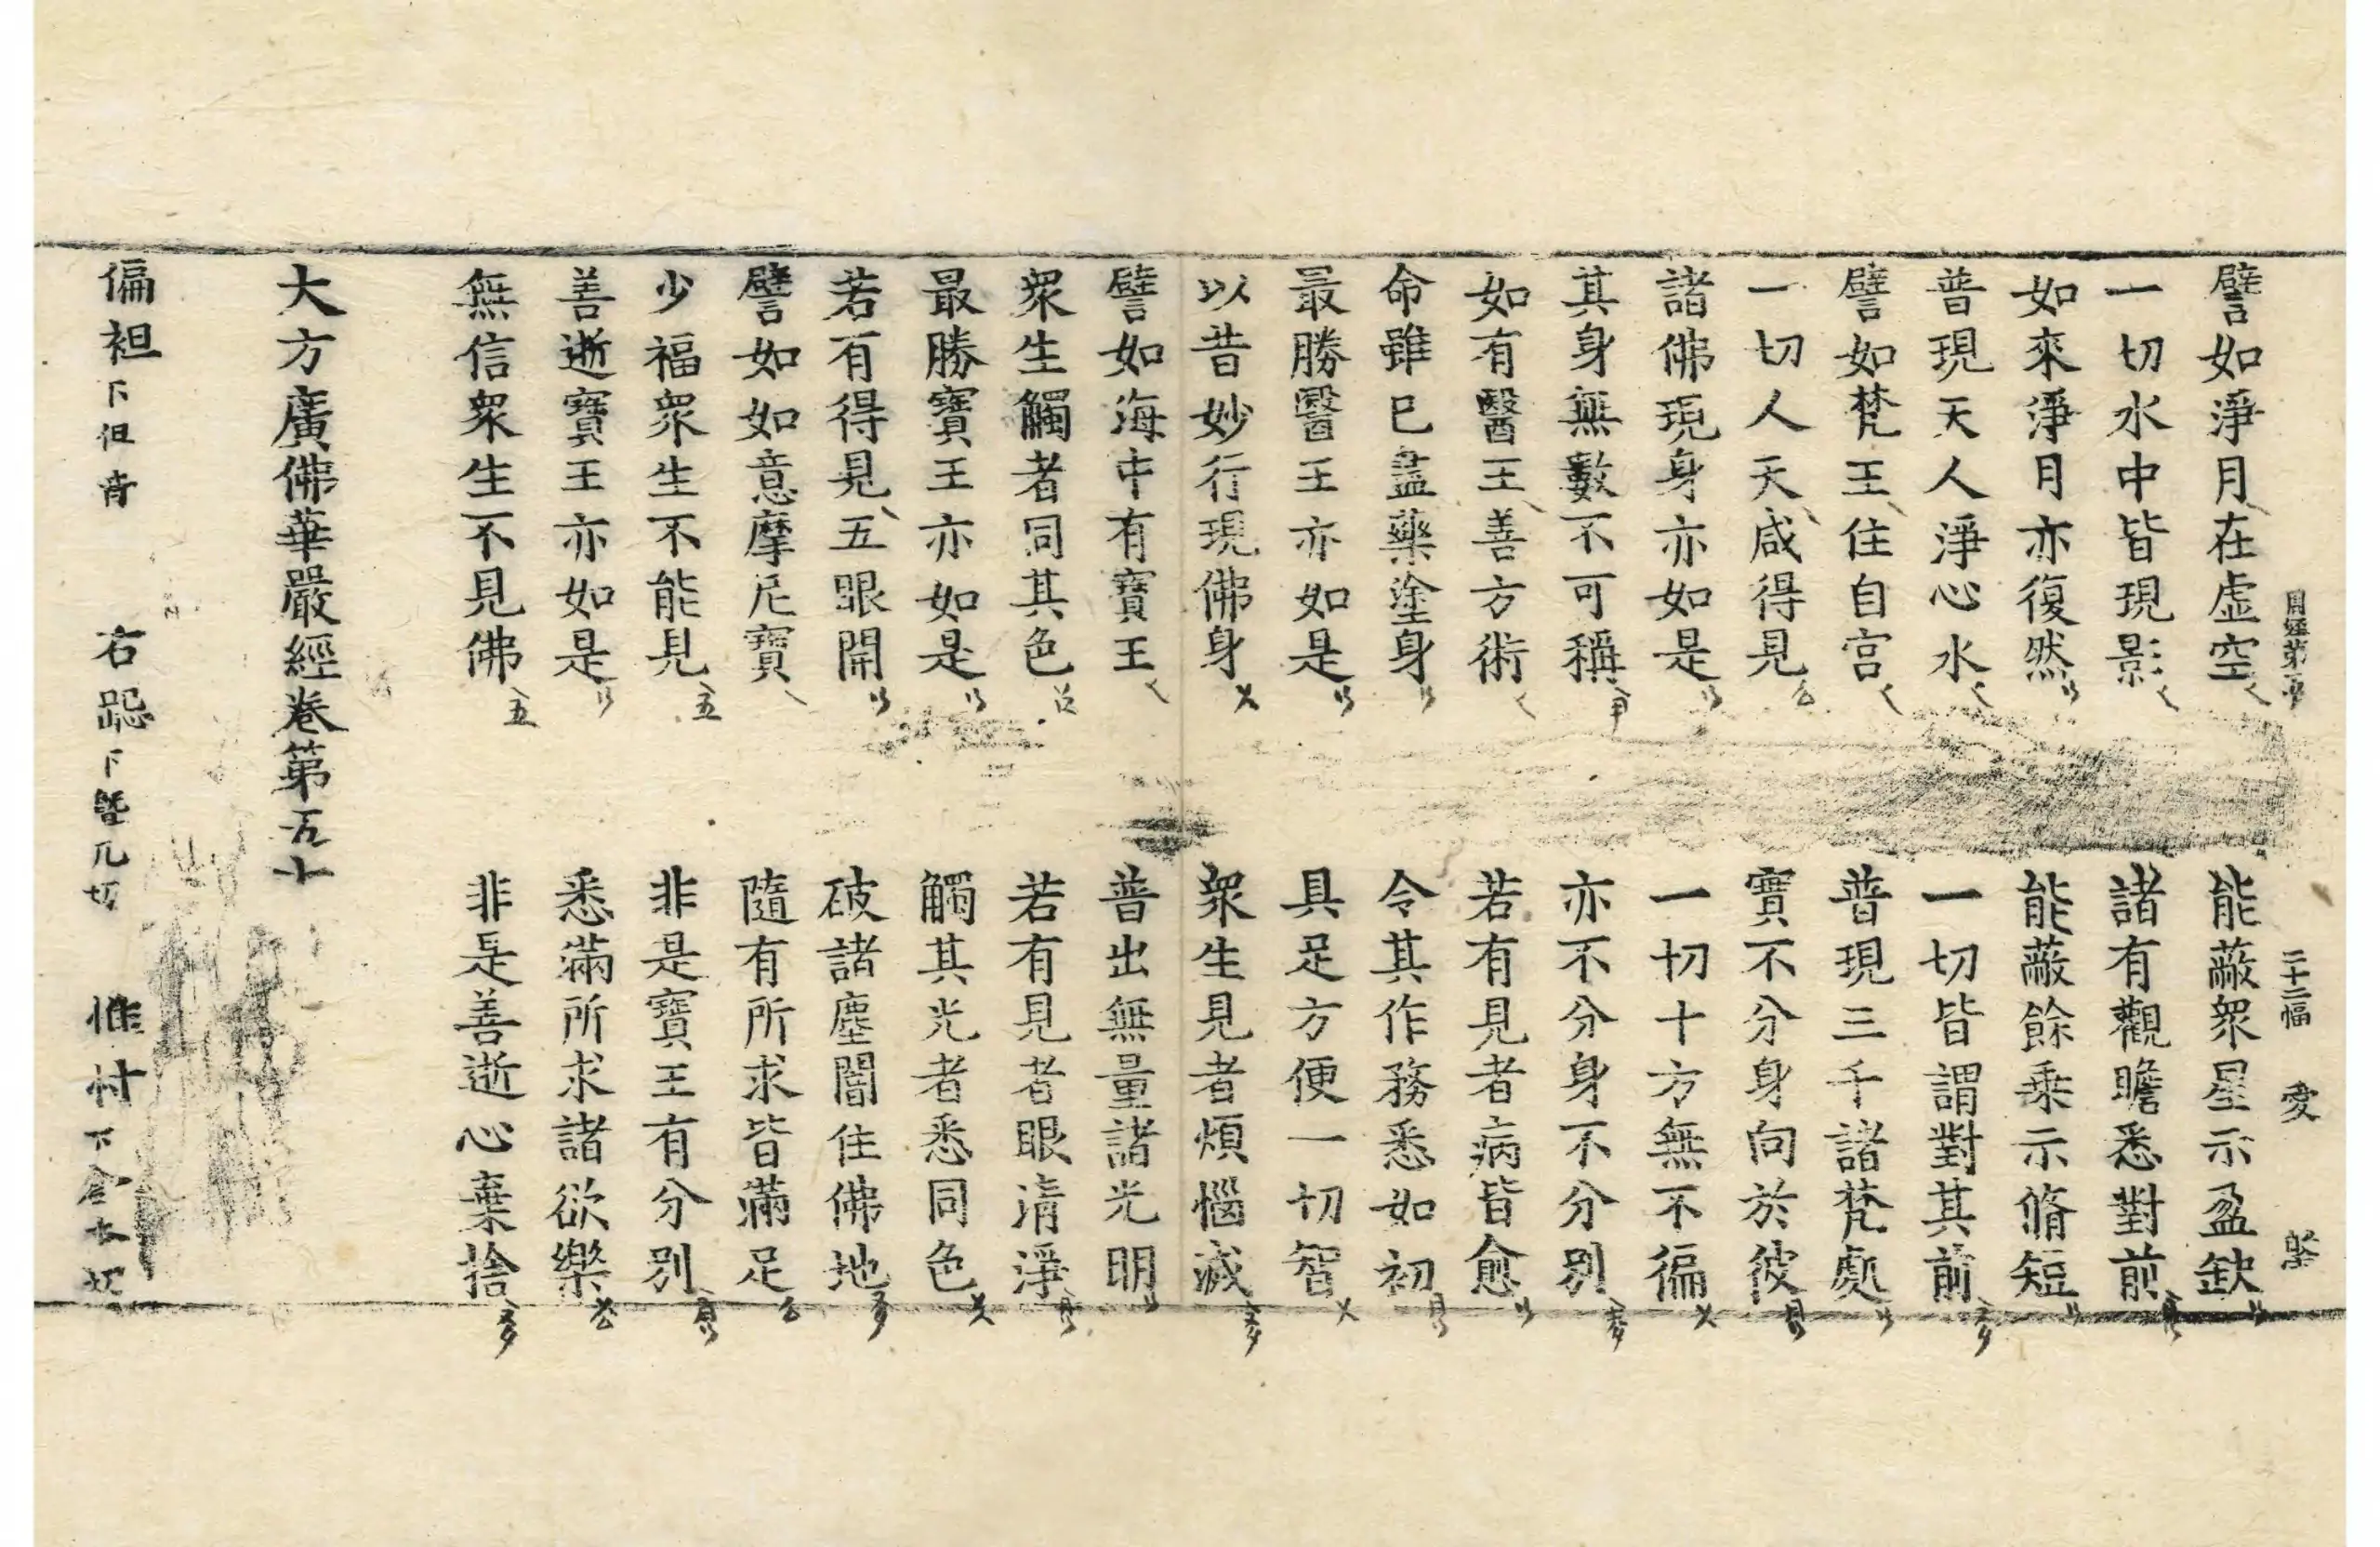 周經第五十 二十二幅 愛
譬如淨月在虛空 能蔽衆星示盈缺
一切水中皆現影 諸有觀瞻悉對前
如來淨月亦復然 能蔽餘乗示脩短
普現天人淨心水 一切皆謂對其前
譬如梵王住自宫 普現三千諸梵處
一切人天咸得見 實不分身向於彼
諸佛現身亦如是 一切十方無不徧
其身無數不可稱 亦不分身不分別
如有醫王善方術 若有見者病皆愈
命雖已盡藥塗身 令其作務悉如初
最勝醫王亦如是 具足方便一切智
以昔妙行現佛身 衆生見者煩惱滅
譬如海中有寶王 普出無量諸光明
衆生觸者同其色 若有見者眼清淨
最勝寶王亦如是 觸其光者悉同色
若有得見五眼開 破諸塵闇住佛地
譬如如意摩尼寶 隨有所求皆滿足
少福衆生不能見 非是寶王有分別
善逝寶王亦如是 悉滿所求諸欲樂
無信衆生不見佛 非是善逝心棄捨
大方廣佛華嚴經卷第五十
偏袒下但旱 右跽下曁几切 惟忖下倉本切